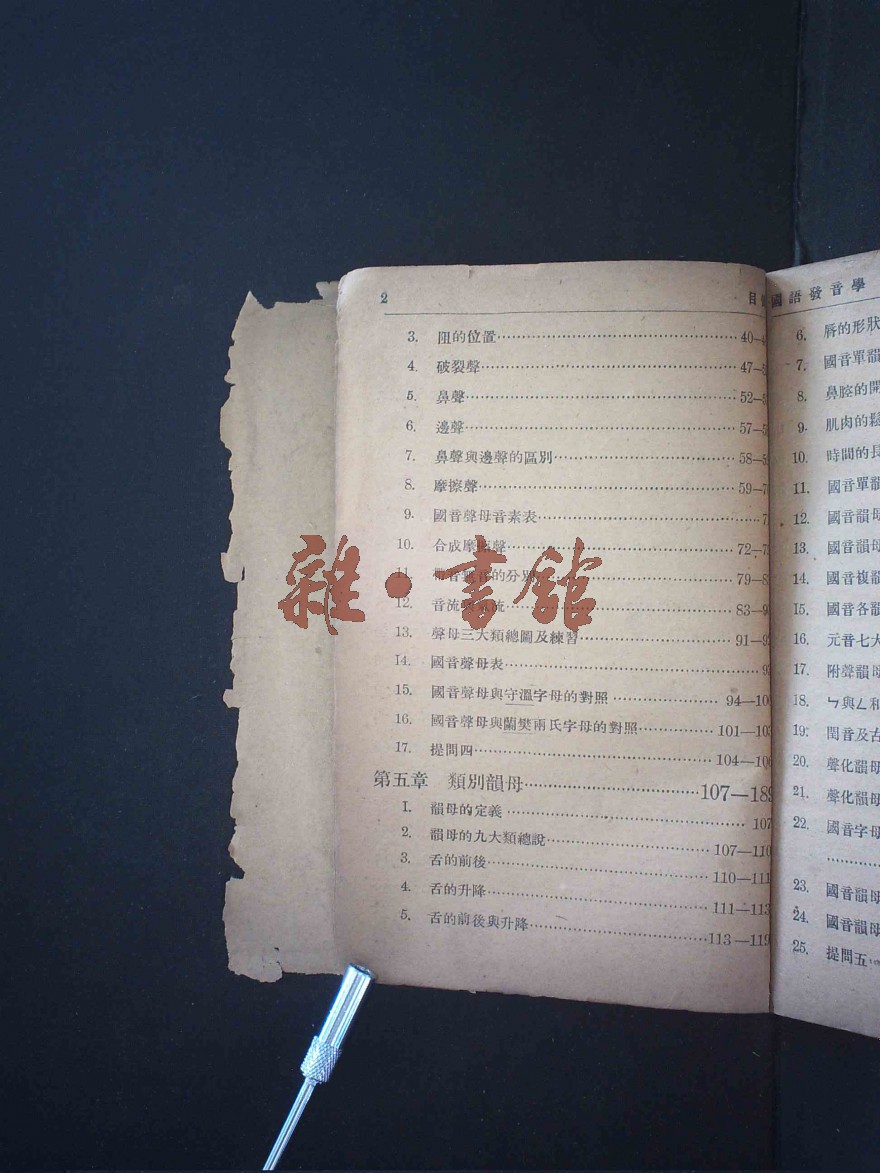 2 目
3. 阻的位置 40—
4. 破裂聲 47—
5. 鼻聲 52—
6. 邊聲 57—
7. 鼻聲與邊聲的區別 58—
8. 摩擦聲 59—
9. 國音聲母音素表 7
10. 合成摩擦聲 72—
11. 帶音 的分別 79—8
12. 音流 流 83—9
13. 聲母三大類總圖及練習 91—9
14. 國音聲母表 9
15. 國音聲母與守溫字母的對照 94—10
16. 國音聲母與蘭樊兩氏字母的對照 101—103
17. 提問四 104—106
第五章 類別韻母 107—189
1. 韻母的定義 107
2. 韻母的九大類總說 107—110
3. 舌的前後 110—111
4. 舌的升降 111—113
5. 舌的前後與升降 113—119
國語發音學
6. 唇的形狀
7. 國音單韻
8. 鼻腔的開
9. 肌肉的鬆
10. 時間的長
11. 國音單韻
12. 國音韻母
13. 國音韻母
14. 國音複韻
15. 國音各韻
16. 元音七大
17. 附聲韻母
18. ㄣ與ㄥ和
19. 閏音及古
20. 聲化韻母
21. 聲化韻母
22. 國音字母
23. 國音韻母
24. 國音韻母
25. 提問五
雜·書館